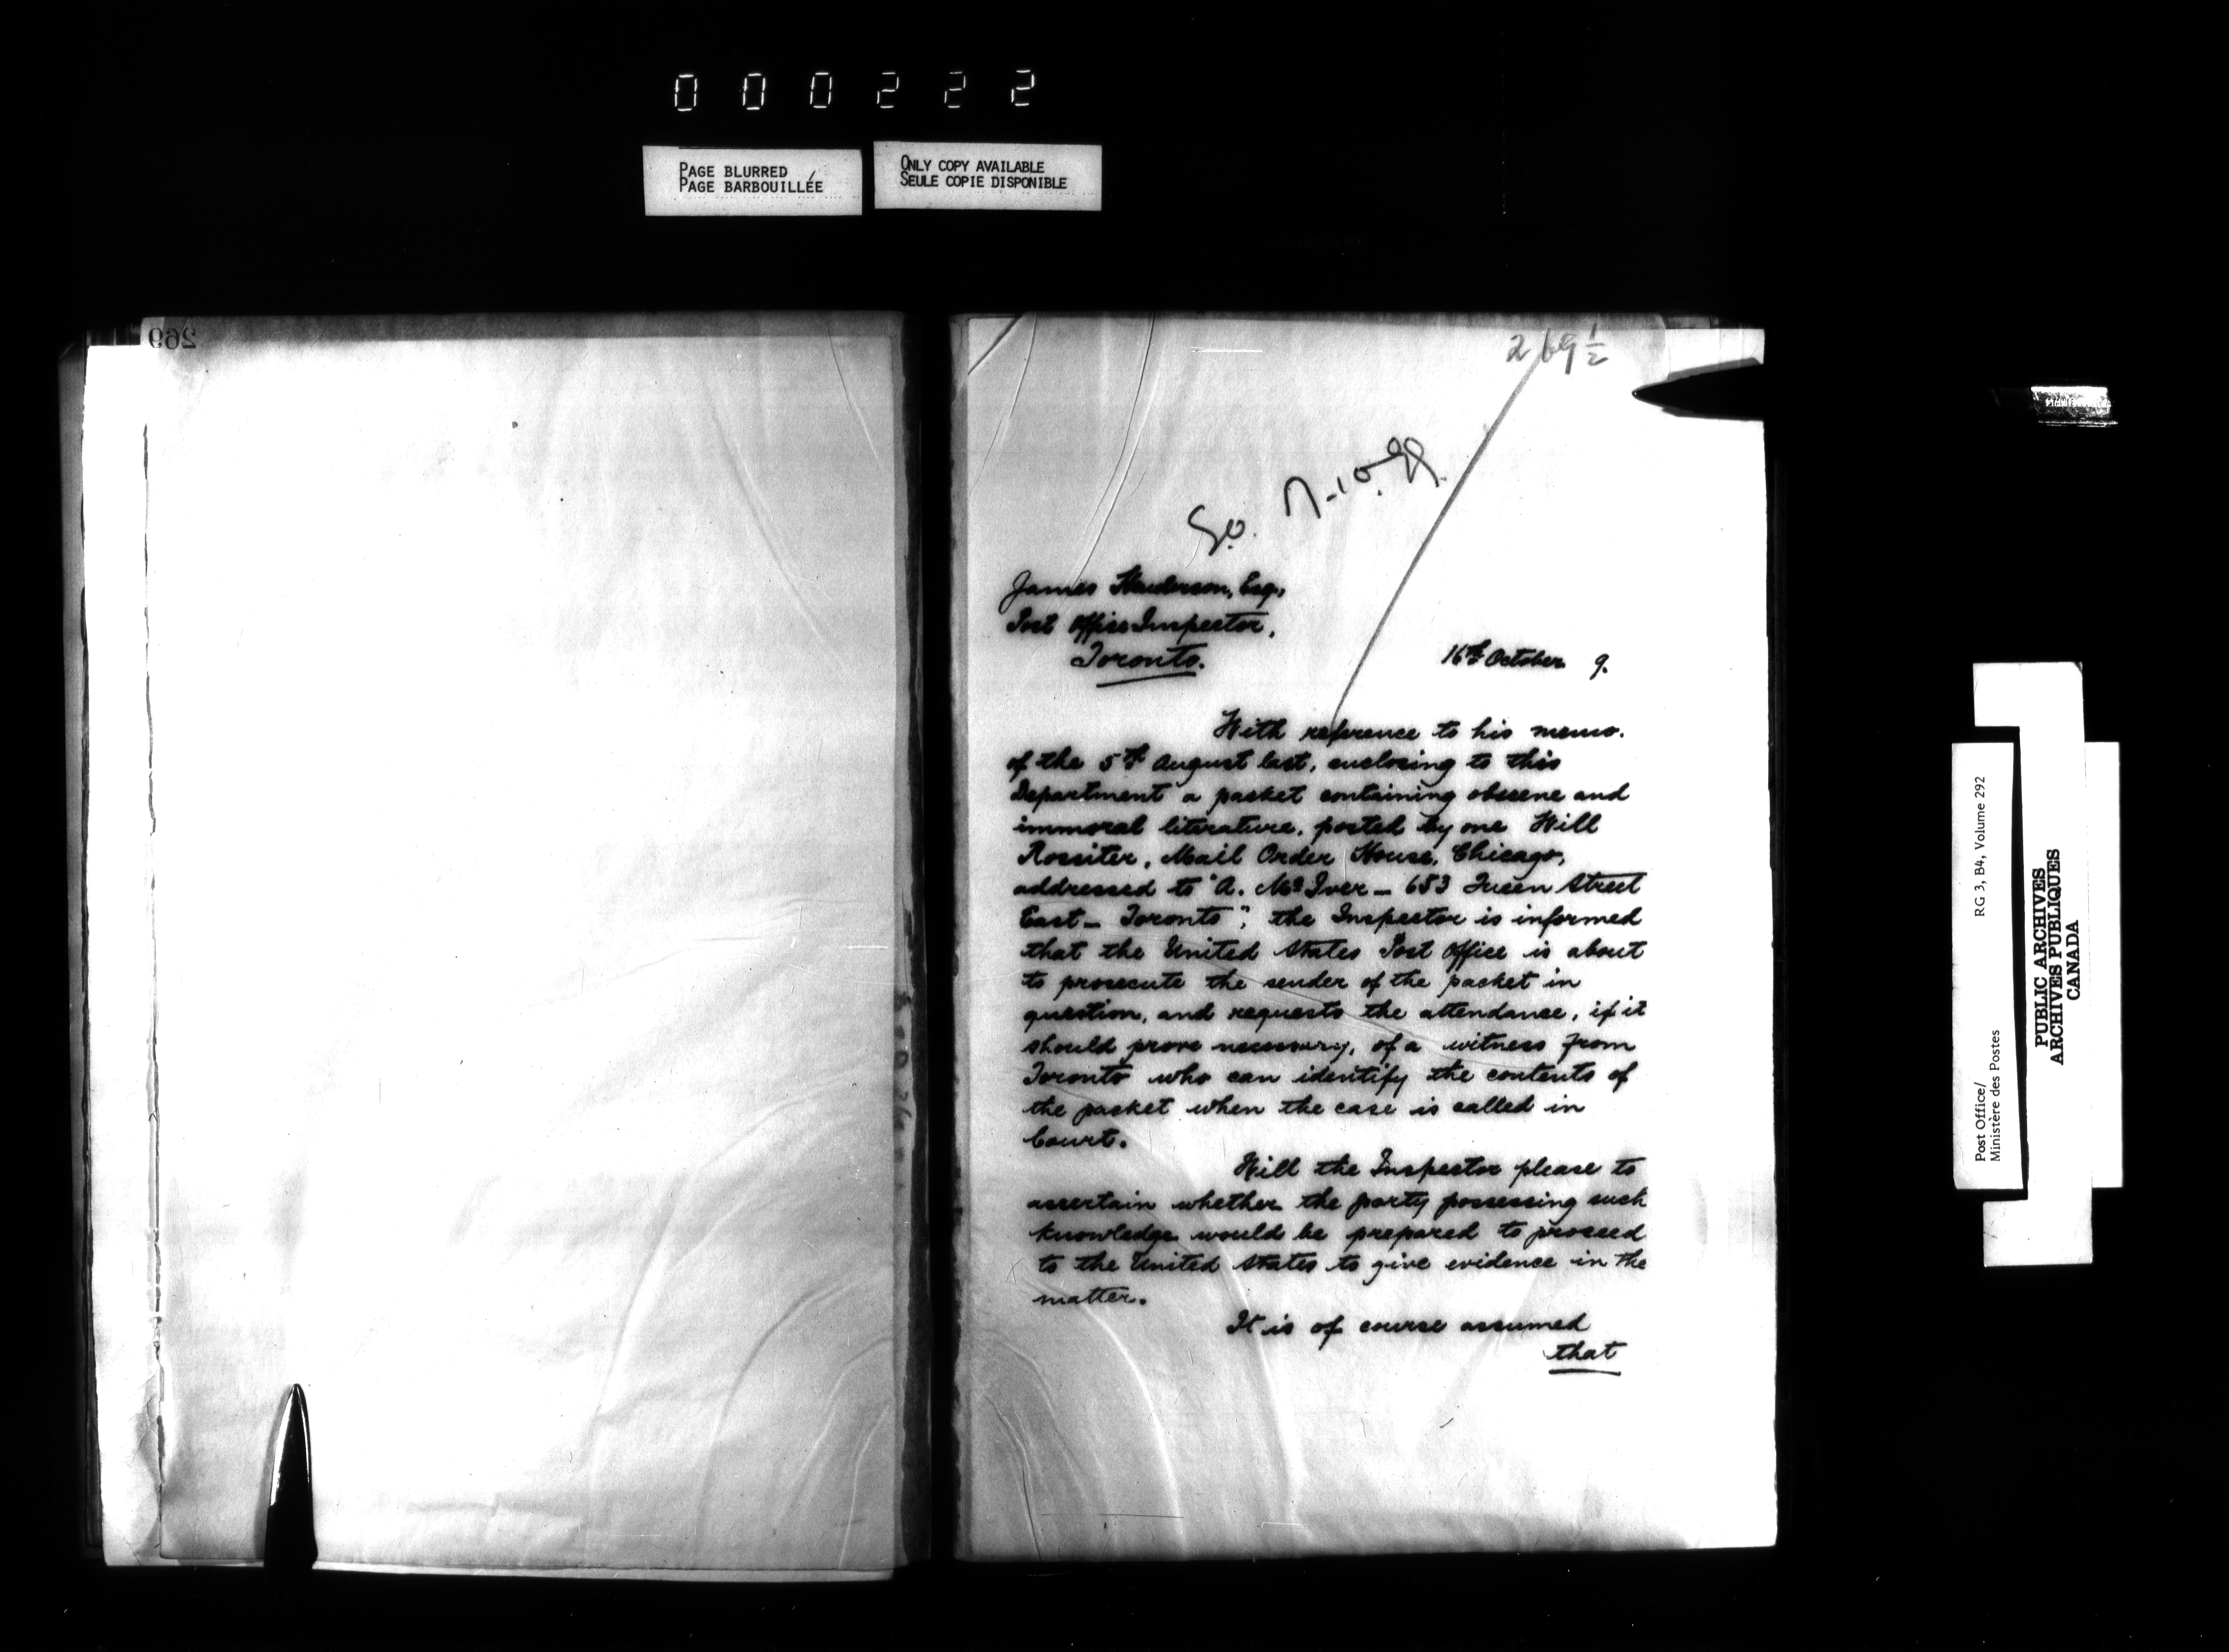 000222
PAGE BLURRED
PAGE BARBOUILLÉE
ONLY COPY AVAILABLE
SEULE COPIE DISPONIBLE
269
269 1/2
James Henderson, Esq,
Post Office Inspector,
Toronto.
16th October 9.
With reference to his memo.
of the 5th August last, enclosing to this
Department a packet containing obscene and
immoral literature, posted by one Will
Rossiter, Mail Order House, Chicago,
addressed to "A. McIver – 653 Queen Street
East – Toronto", the Inspector is informed
that the United States Post Office is about
to prosecute the sender of the packet in
question, and requests the attendance, if it
should prove necessary, of a witness from
Toronto who can identify the contents of
the packet when the case is called in
Court.
Will the Inspector please to
ascertain whether the party possessing such
knowledge would be prepared to proceed
to the United States to give evidence in the
matter.
It is of course assumed
that
Post Office/
Ministère des Postes
RG 3, B4, Volume 292
PUBLIC ARCHIVES
ARCHIVES PUBLIQUES
CANADA